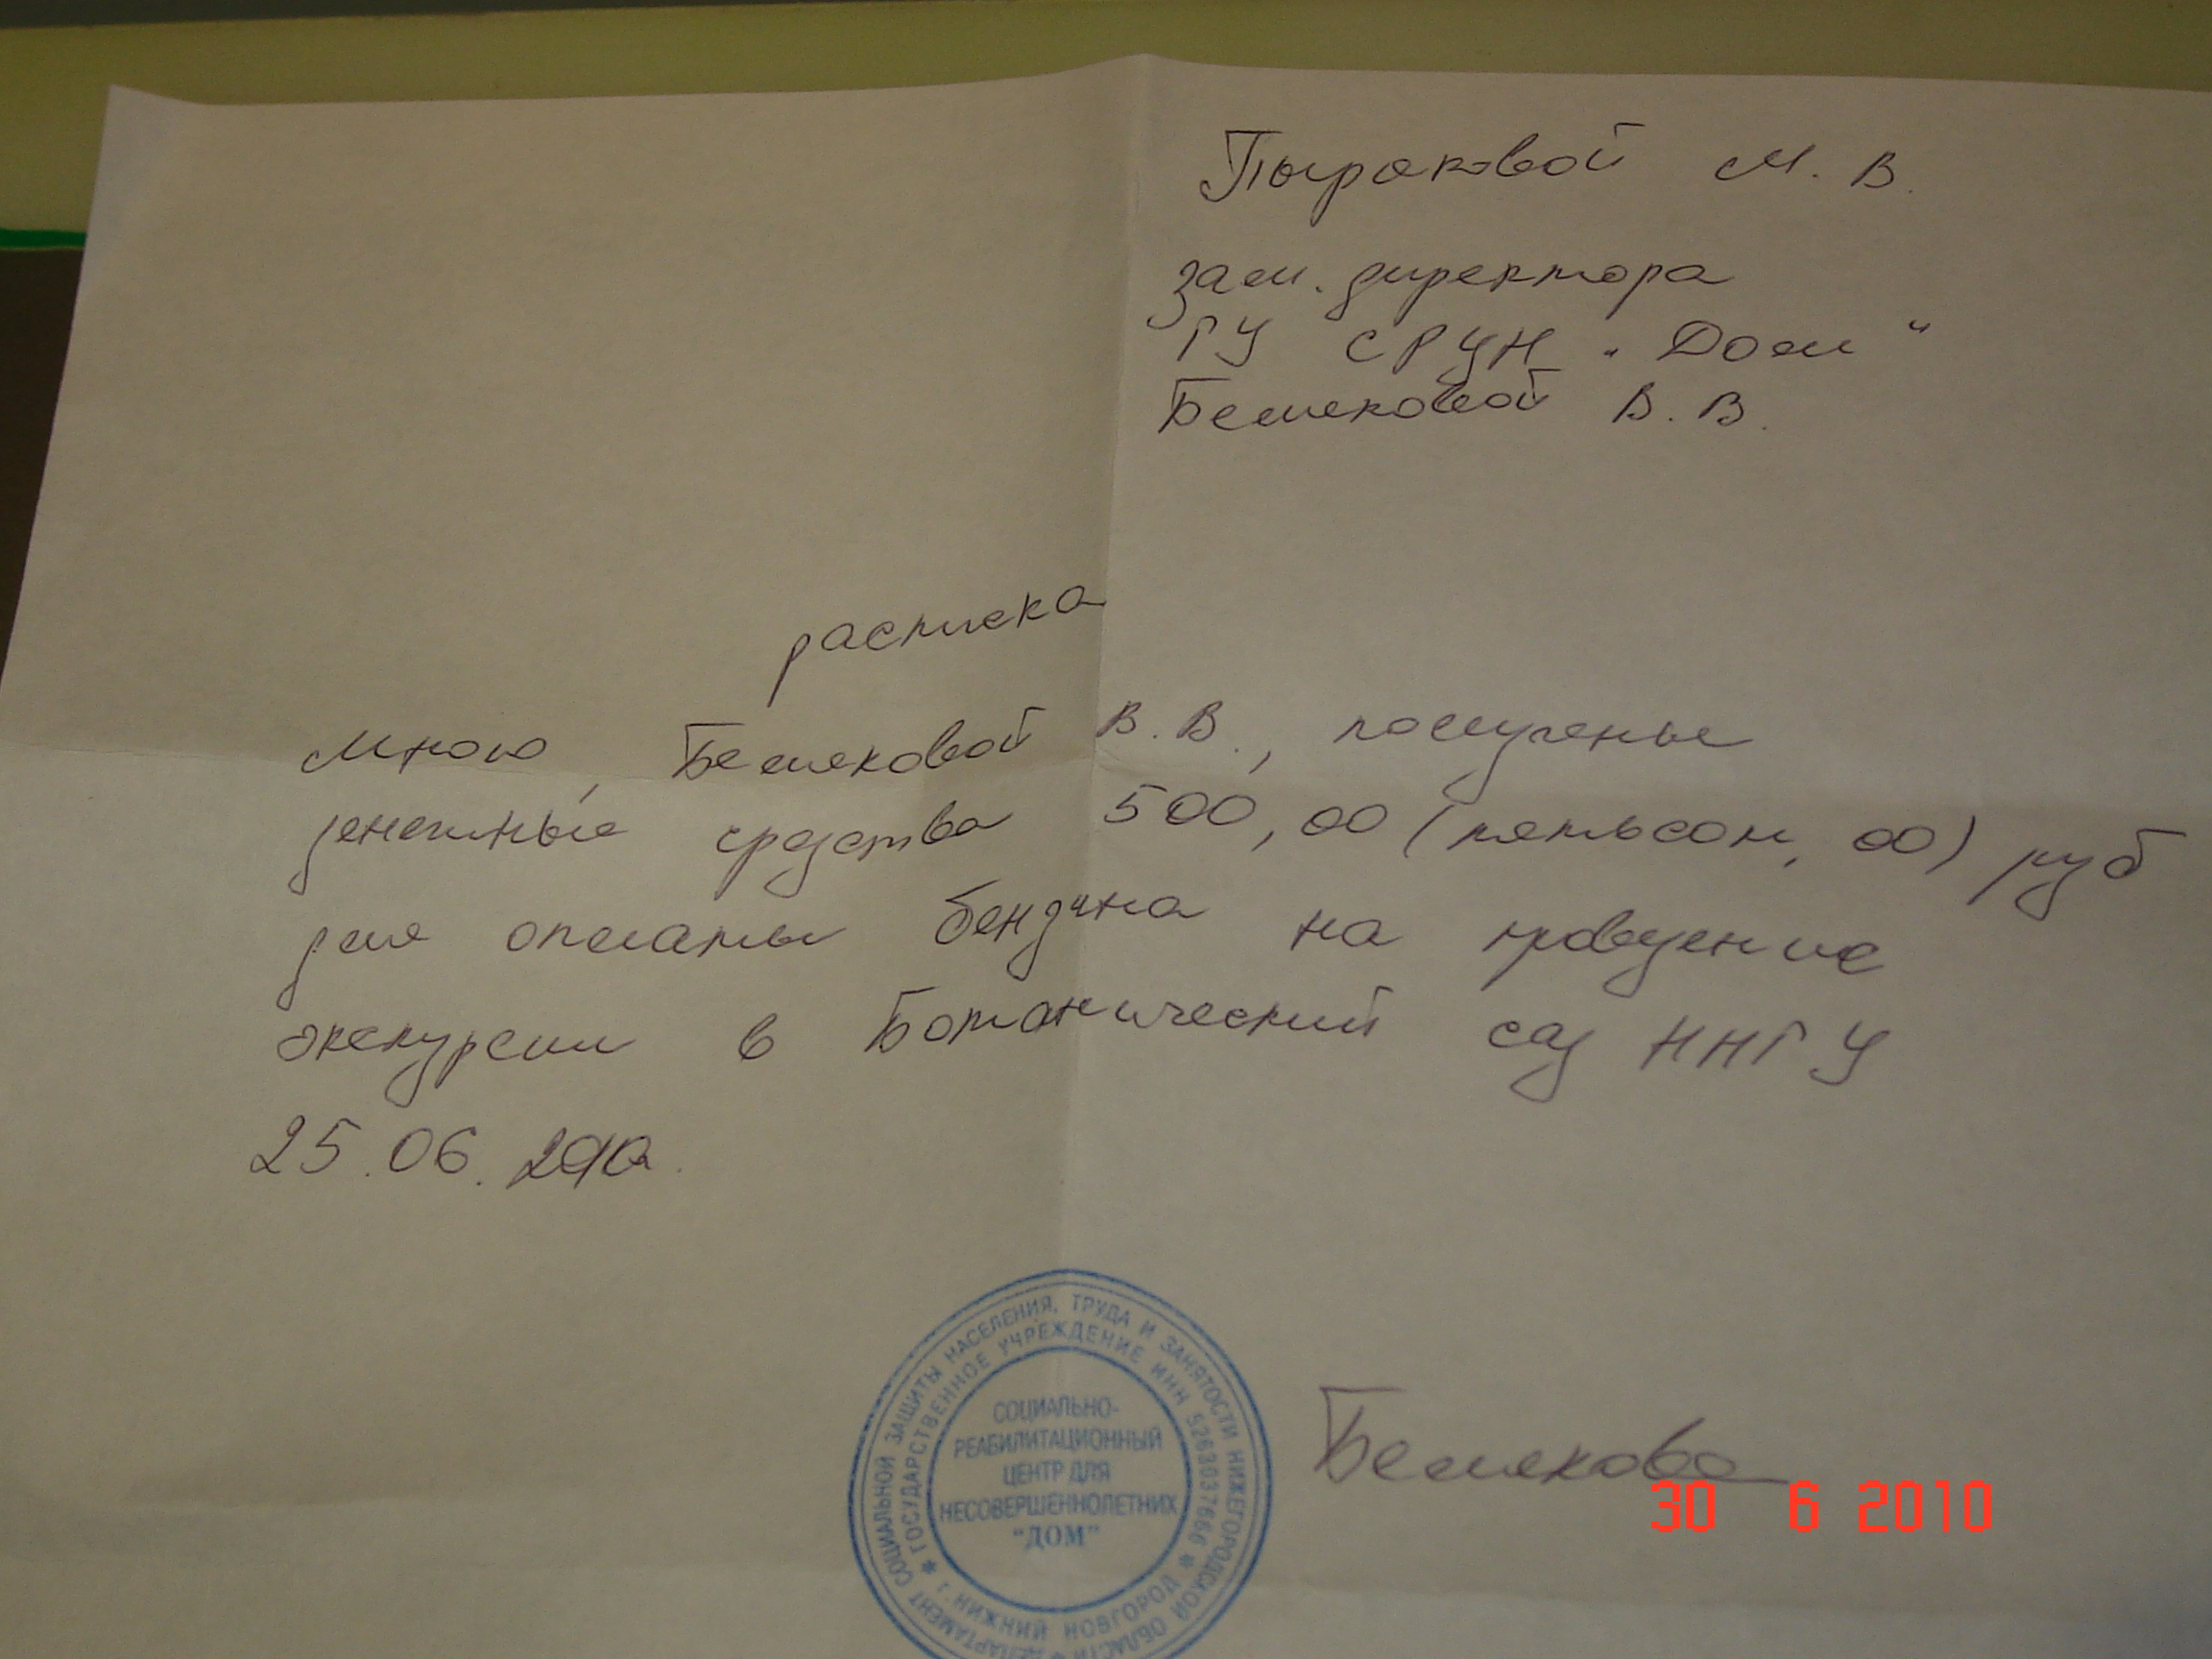 Пыраковой М. В.
зам. директора
ГУ СРЦН "Дом"
Беляковой В. В.
расписка
Мною, Беляковой В. В., полученые
денежные средства 500,00 (пятьсот, 00) руб
для оплаты бензина на проведение
экскурсии в Ботанический сад ННГУ
25.06.2010.
ДЕПАРТАМЕНТ СОЦИАЛЬНОЙ ЗАЩИТЫ НАСЕЛЕНИЯ, ТРУДА И ЗАНЯТОСТИ НИЖЕГОРОДСКОЙ ОБЛАСТИ
* ГОСУДАРСТВЕННОЕ УЧРЕЖДЕНИЕ ИНН 5263037666 * г. НИЖНИЙ НОВГОРОД
СОЦИАЛЬНО-
РЕАБИЛИТАЦИОННЫЙ
ЦЕНТР ДЛЯ
НЕСОВЕРШЕННОЛЕТНИХ
"ДОМ"
Белякова
30 6 2010